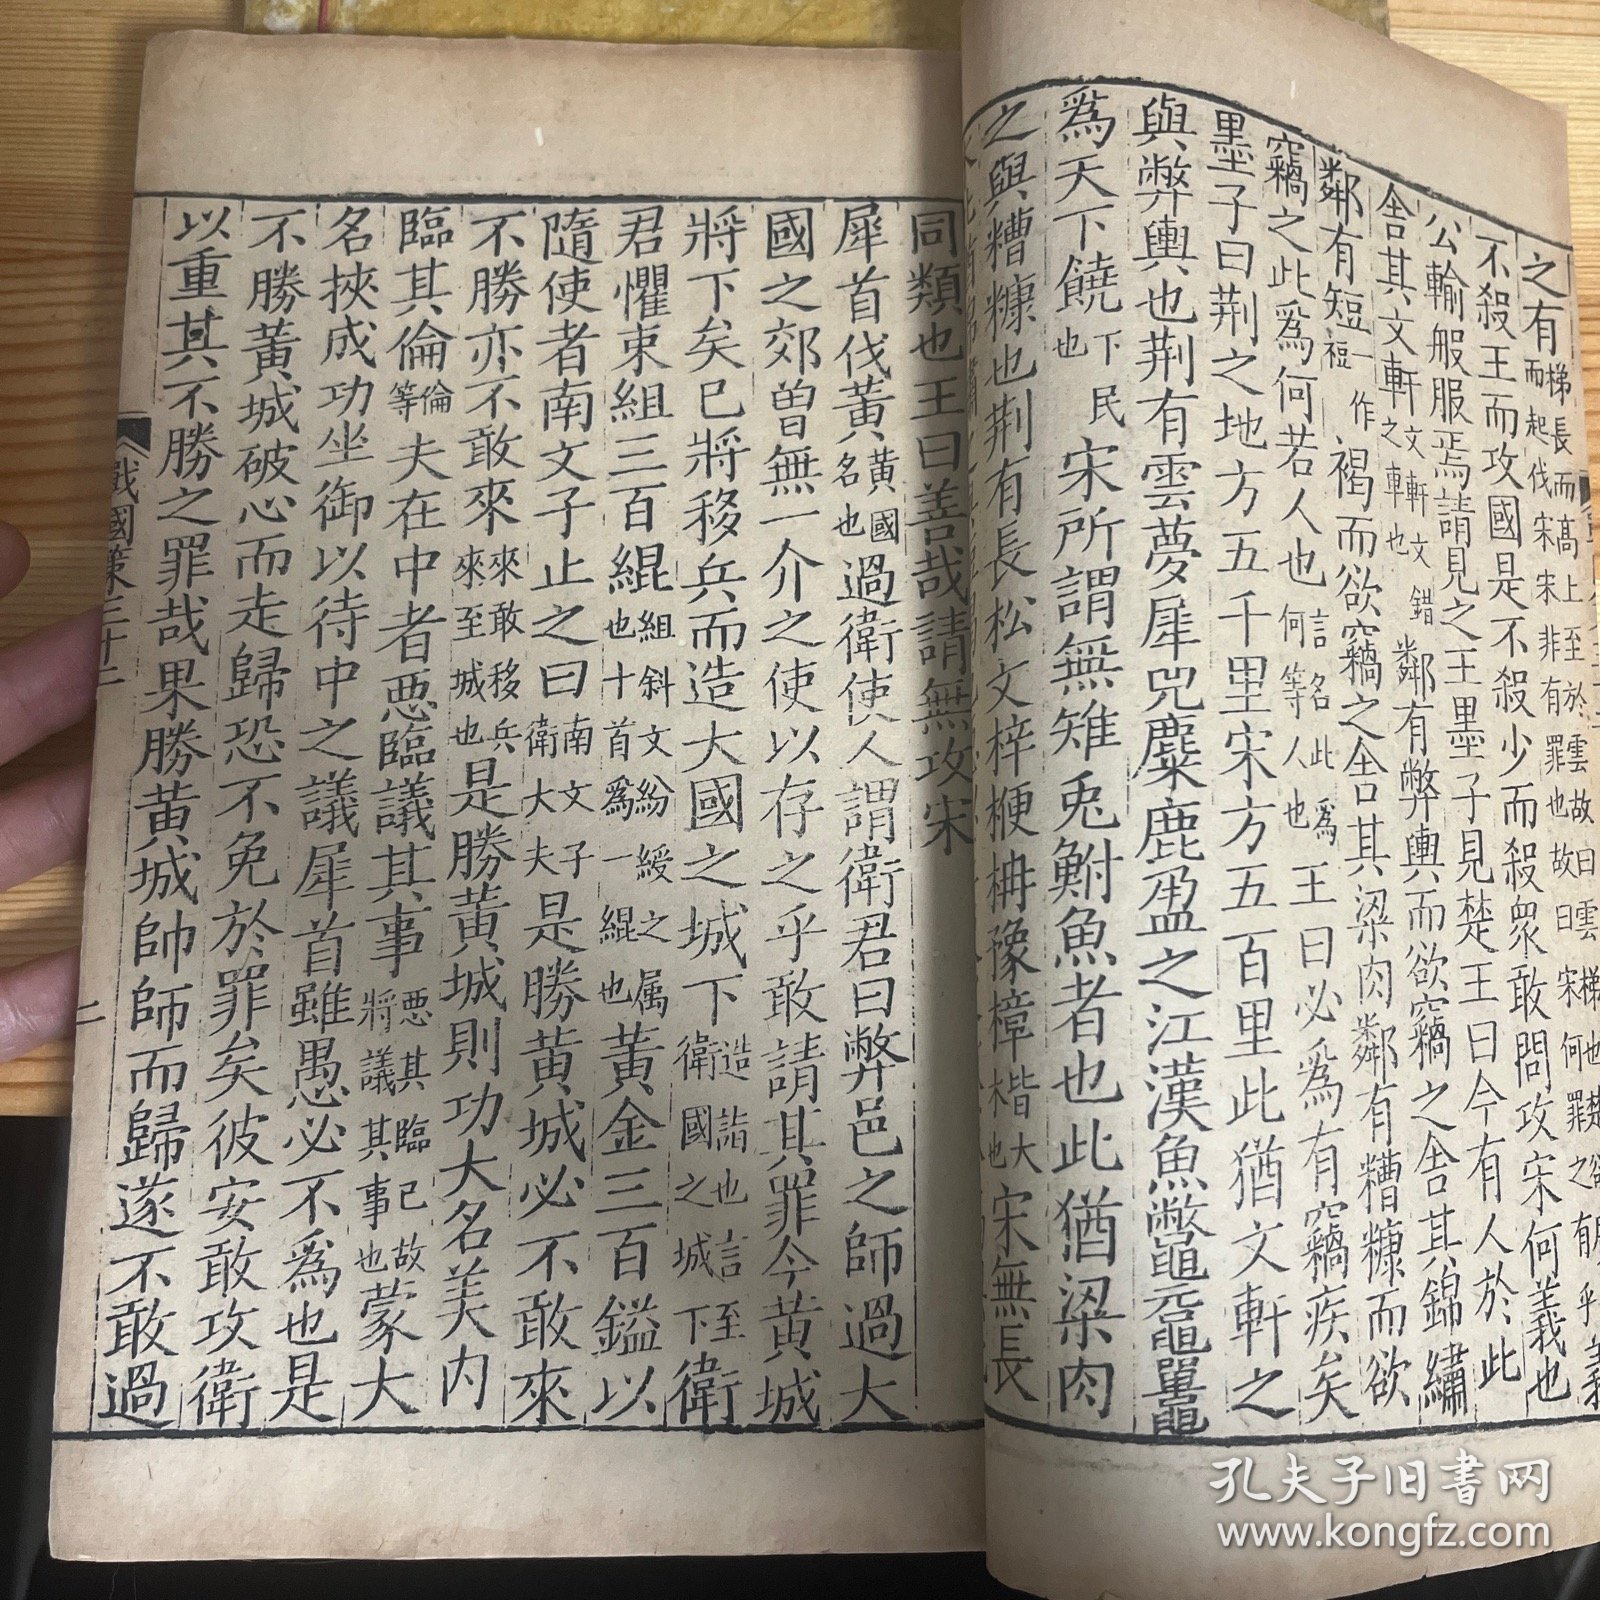 之有梯長而高上至於雲故曰雲梯何也楚
而起伐宋宋非有罪也故曰宋何罪之
不殺王而攻國是不殺少而殺眾敢問攻宋何義也
公輸般服焉請見之王墨子見楚王曰今有人於此
舍其文軒文軒文錯之車也鄰有弊輿而欲竊之舍其錦繡
鄰有短一作𥚩褐而欲竊之舍其梁肉鄰有糟糠而欲
竊之此爲何若人也言名此爲何等人也王曰必爲有竊疾矣
墨子曰荆之地方五千里宋方五百里此猶文軒之
與弊輿也荆有雲夢犀兕麋鹿盈之江漢魚鼈黿鼉
爲天下饒下民也宋所謂無雉兎鮒魚者也此猶梁肉
之與糟糠也荆有長松文梓楩柟豫樟楷大木也宋無長
同類也王曰善哉請無攻宋
犀首伐黃黃國名也過衛使人謂衛君曰弊邑之師過大
國之郊曾無一介之使以存之乎敢請其罪今黃城
將下矣已將移兵而造大國之城下造詣也言至衛國之城下衛
君懼束組三百緄組斜文紛綬之屬也十首爲一緄也黃金三百鎰以
隨使者南文子止之曰南文子衛大夫是勝黃城必不敢來
不勝亦不敢來來敢移兵來至城也是勝黃城則功大名美内
臨其倫倫等夫在中者惡臨議其事惡其臨己故將議其事也蒙大
名挾成功坐御以待中之議犀首雖愚必不爲也是
不勝黃城破心而走歸恐不免於罪矣彼安敢攻衛
以重其不勝之罪哉果勝黃城帥師而歸遂不敢過
戰國策三十二
二
孔夫子旧书网
www.kongfz.com